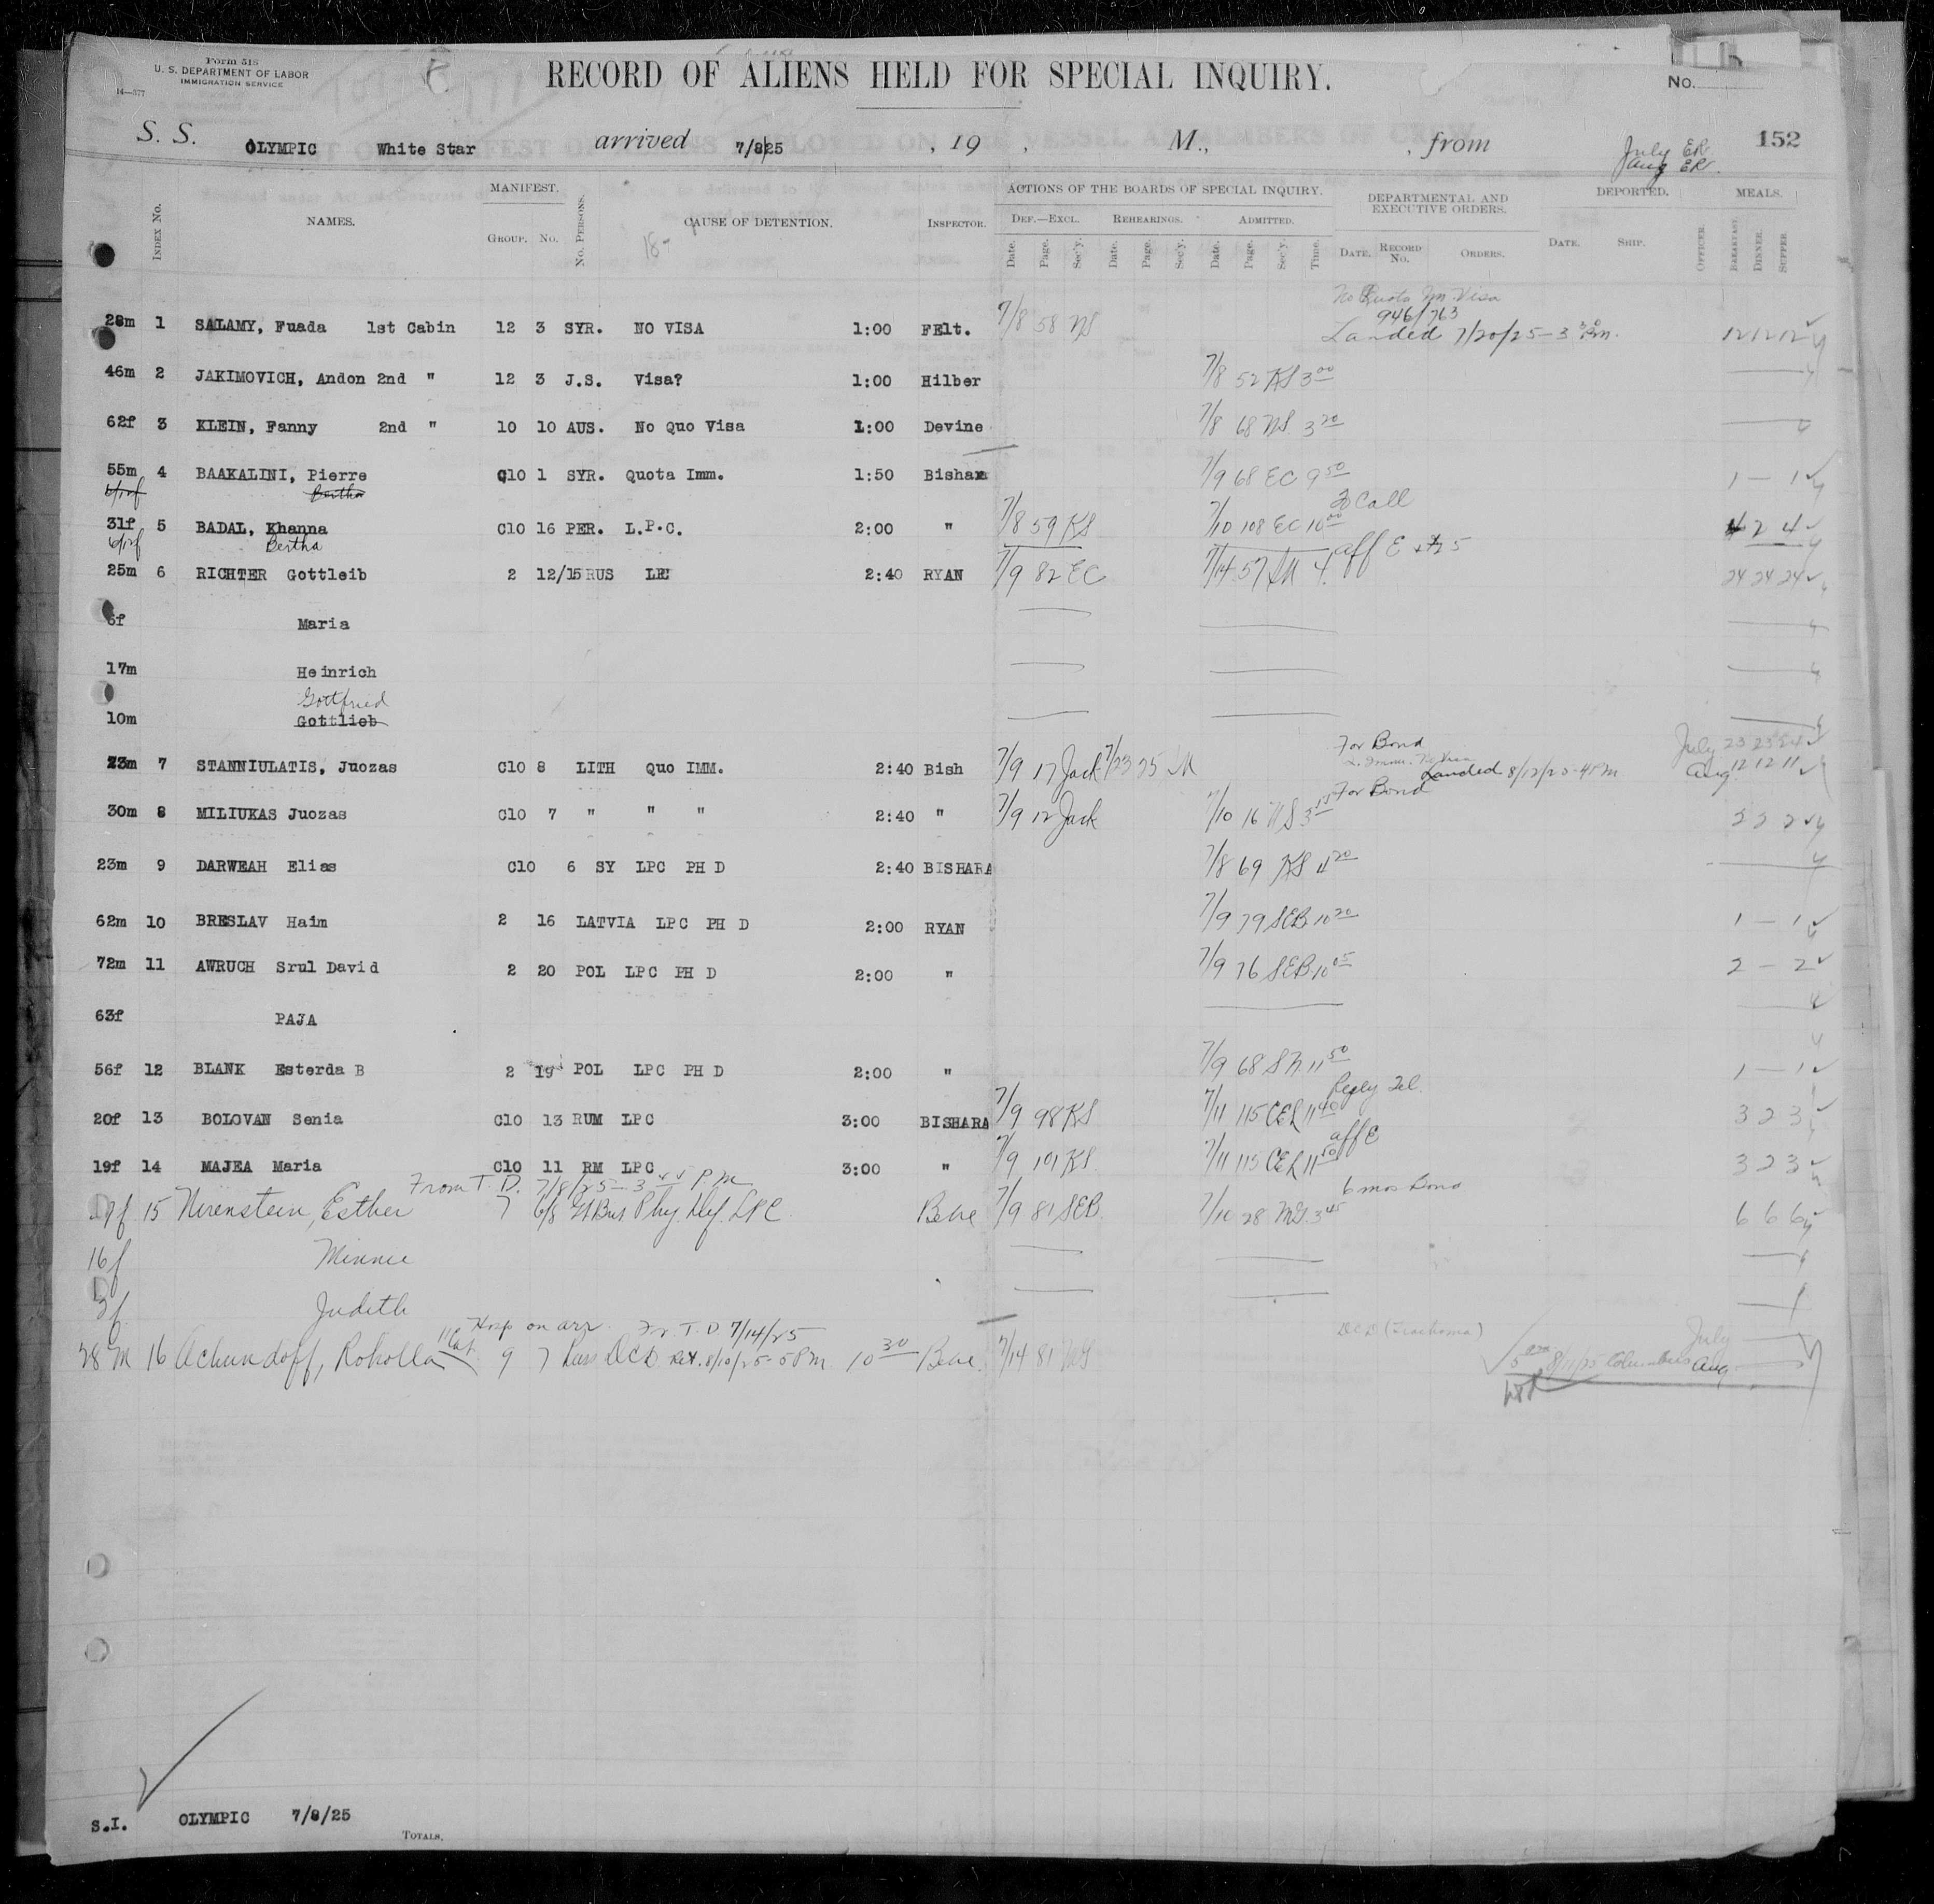 Form 518
U. S. DEPARTMENT OF LABOR
IMMIGRATION SERVICE
14—377
RECORD OF ALIENS HELD FOR SPECIAL INQUIRY.
No.
S. S. OLYMPIC White Star arrived 7/8/25 , 19 , M., , from
July ER
Aug ER.
152
INDEX No. NAMES. MANIFEST. GROUP. No. No. PERSONS. CAUSE OF DETENTION. INSPECTOR. ACTIONS OF THE BOARDS OF SPECIAL INQUIRY. DEPARTMENTAL AND EXECUTIVE ORDERS. DEPORTED. MEALS.
DEF.—EXCL. REHEARINGS. ADMITTED.
Date. Page. Sec'y. Date. Page. Sec'y. Date. Page. Sec'y. Time. DATE. RECORD No. ORDERS. DATE. SHIP. OFFICER. BREAKFAST. DINNER. SUPPER.
18-
No Quota Im Visa
946/763
28m 1 SALAMY, Fuada 1st Cabin 12 3 SYR. NO VISA 1:00 FElt. 7/8 58 NS Landed 7/20/25—3 30 Pm. 12 12 12
46m 2 JAKIMOVICH, Andon 2nd " 12 3 J.S. Visa? 1:00 Hilber 7/8 52 KS 3 00
62f 3 KLEIN, Fanny 2nd " 10 10 AUS. No Quo Visa 1:00 Devine 7/8 68 NS 3 20
55m 4 BAAKALINI, Pierre C10 1 SYR. Quota Imm. 1:50 Bishar 7/9 68 EC 9 50 1 — 1
Bertha
To Call
31f 5 BADAL, Khanna C10 16 PER. L.P.C. 2:00 " 7/8 59 KS 7/10 108 EC 10 00 4 2 4
Bertha
aff E
25m 6 RICHTER Gottleib 2 12/15 RUS LE 2:40 RYAN 7/9 82 EC 7/14 57 4 24 24 24
6f Maria
17m Heinrich
Gottfried
10m Gottlieb
For Bond
July 23 23 24
23m 7 STANNIULATIS, Juozas C10 8 LITH Quo IMM. 2:40 Bish 7/9 17 Jack 7/23 25 Landed 8/12/25-4PM Aug 12 12 11
For Bond
30m 8 MILIUKAS Juozas C10 7 " " " 2:40 " 7/9 12 Jack 7/10 16 NS 3 15 2 2 2
23m 9 DARWEAH Elias C10 6 SY LPC PH D 2:40 BISHARA 7/8 69 KS 4 20
62m 10 BRESLAV Haim 2 16 LATVIA LPC PH D 2:00 RYAN 7/9 79 SEB 10 20 1 — 1
72m 11 AWRUCH Srul David 2 20 POL LPC PH D 2:00 " 7/9 76 SEB 10 05 2 — 2
63f PAJA
56f 12 BLANK Esterda B 2 19 POL LPC PH D 2:00 " 7/9 68 SN 11 50 1 — 1
Reply Tel.
20f 13 BOLOVAN Senia C10 13 RUM LPC 3:00 BISHARA 7/9 98 KS 7/11 115 CER 11 40 3 2 3
aff E
19f 14 MAJEA Maria C10 11 RM LPC 3:00 " 7/9 101 KS 7/11 115 CER 11 50 3 2 3
From T. D. 7/8/25—3 44 P.M. 6 mos Bond
15 Nirenstein, Esther 7 6/8 Phy. Def. LPC Bene 7/9 81 SEB. 7/10 28 MG. 3 45 6 6 6
16f Minnie
3f Judith
Hosp on arr. Fr. T.D 7/14/25 DCD (Trachoma) July
28 M 16 Achundoff, Rokolla 9 7 DCD Ret. 8/10/25-5PM 10 30 Bene. 7/14 81 8/11/25 Columbus Aug
S.I. OLYMPIC 7/8/25
TOTALS.